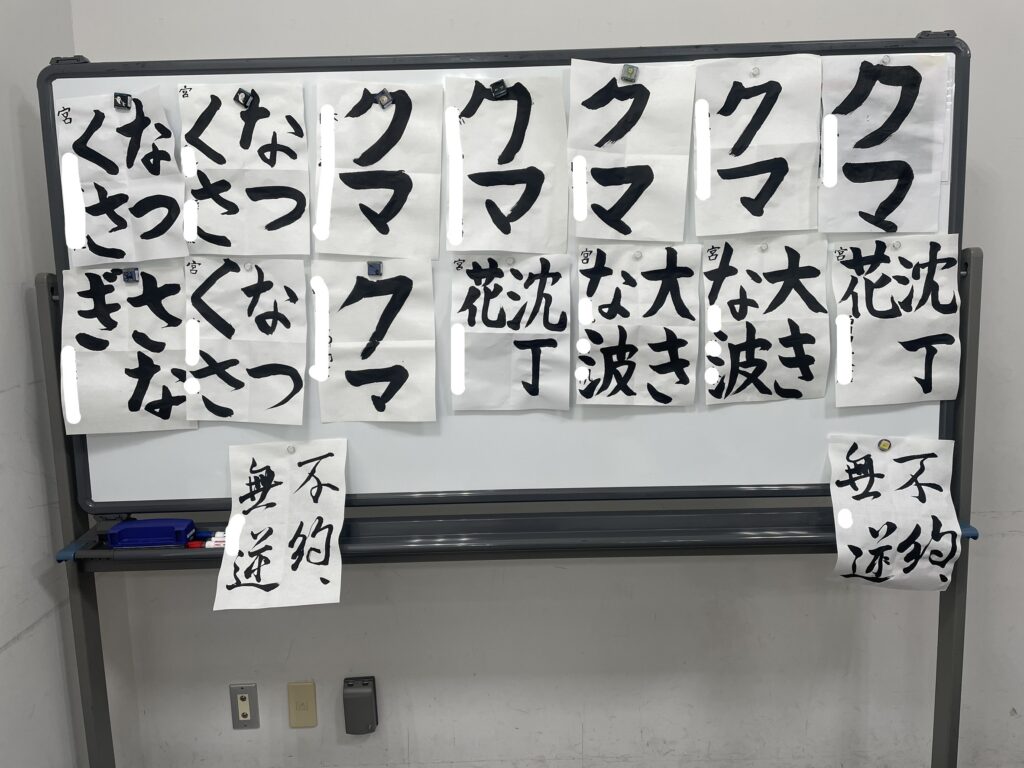 なつ
くさ
宮
なつ
くさ
宮
クマ
クマ
クマ
クマ
クマ
さな
ぎ
なつ
くさ
宮
クマ
沈丁
花
宮
大き
な波
宮
大き
な波
宮
沈丁
花
宮
不約、
無逆
不約、
無逆